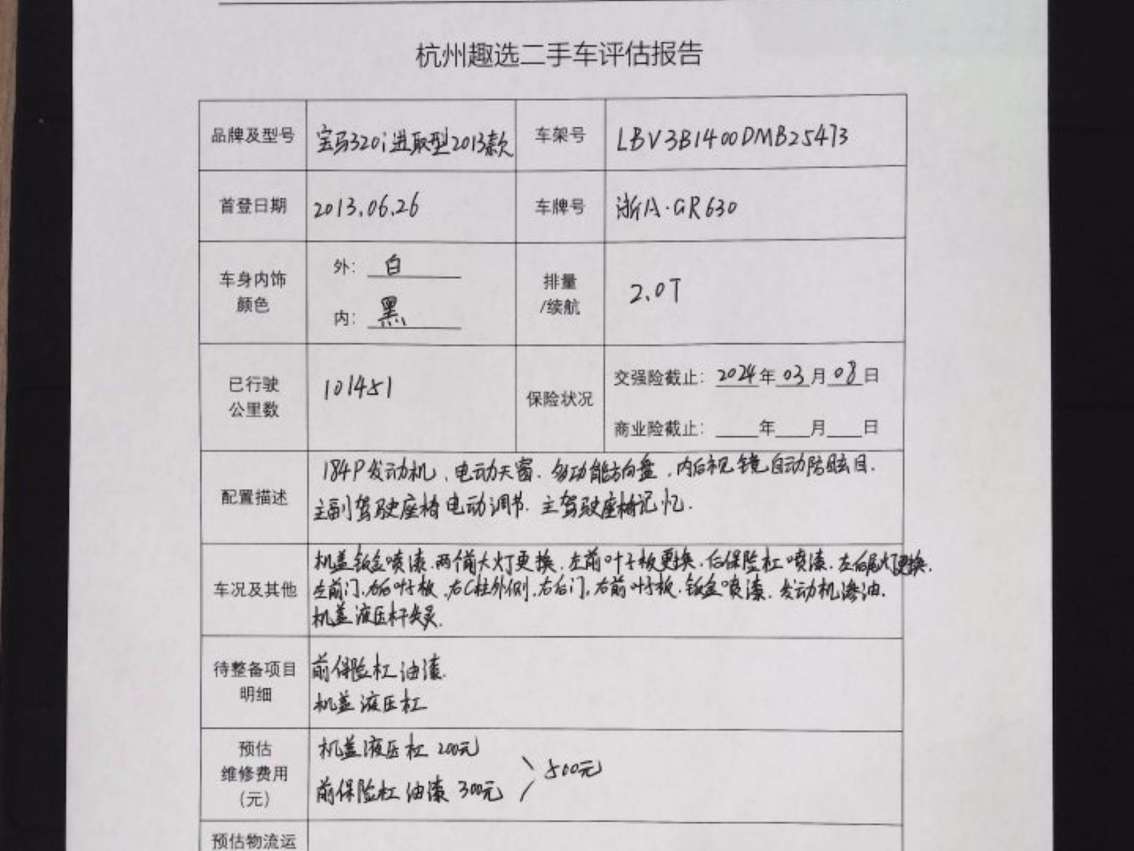 杭州趣选二手车评估报告
品牌及型号 宝马320i进取型2013款 车架号 LBV3B1400DMB25473
首登日期 2013.06.26 车牌号 浙A·GR630
车身内饰
颜色
外: 白
内: 黑
排量
/续航
2.0T
已行驶
公里数
101451
保险状况
交强险截止: 2024年03月08日
商业险截止: ____年____月____日
配置描述
184P发动机、电动天窗、多功能方向盘、内后视镜自动防眩目.
主副驾驶座椅电动调节、主驾驶座椅记忆.
车况及其他
机盖钣金喷漆、两前大灯更换、左前叶子板更换、后保险杠喷漆、左后尾灯更换.
左前门、右后叶子板、右C柱外侧、右后门、右前叶子板、钣金喷漆、发动机渗油.
机盖液压杆失灵.
待整备项目
明细
前保险杠油漆.
机盖液压杠
预估
维修费用
(元)
机盖液压杠 200元
前保险杠油漆 300元
500元
预估物流运